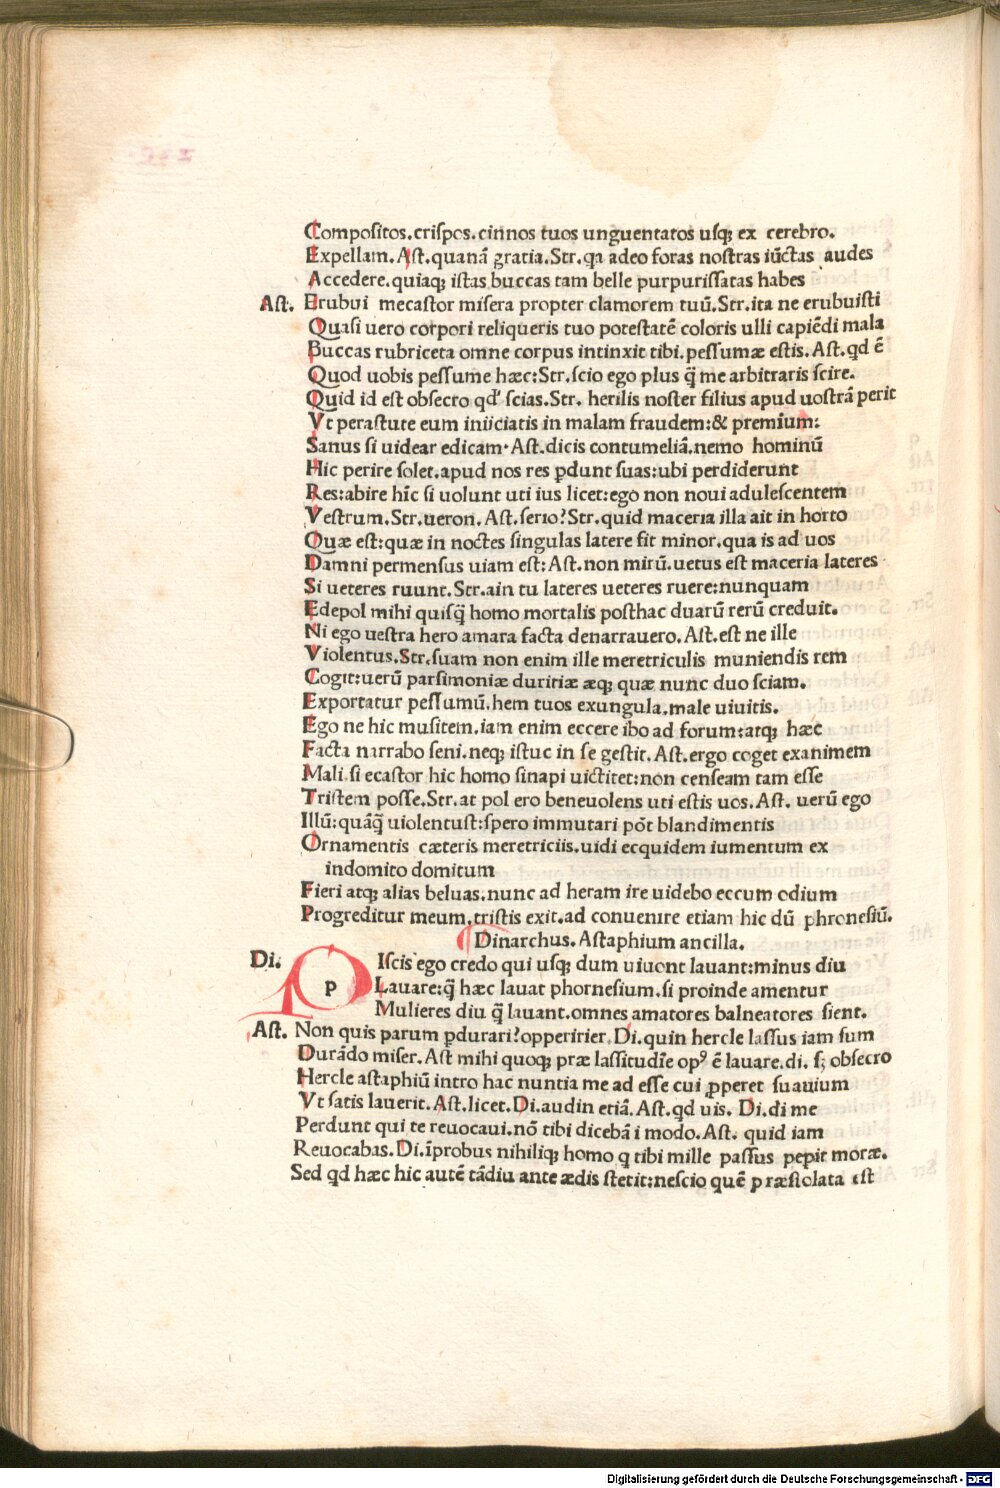 Compositos.crispos.cinnos tuos unguentatos usq; ex cerebro.
Expellam. Ast.quanā gratia.Str.qa adeo foras nostras iūctas audes
Accedere.quiaq; istas buccas tam belle purpurissatas habes
Ast. Erubui mecastor misera propter clamorem tuū.Str.ita ne erubuisti
Quasi uero corpori reliqueris tuo potestatē coloris ulli capiēdi mala
Buccas rubriceta omne corpus intinxit tibi.pessumæ estis. Ast.qd ē
Quod uobis pessume hæc:Str.scio ego plus q̄ me arbitraris scire.
Quid id est obsecro qd' scias.Str. herilis noster filius apud uostrā perit
Vt perastute eum iniiciatis in malam fraudem:& premium:
Sanus si uidear edicam. Ast.dicis contumeliā.nemo hominū
Hic perire solet.apud nos res ꝑdunt suas:ubi perdiderunt
Res:abire hīc si uolunt uti ius licet:ego non noui adulescentem
Vestrum.Str.ueron. Ast.serio?Str.quid maceria illa ait in horto
Quæ est:quæ in noctes singulas latere fit minor.qua is ad uos
Damni permensus uiam est: Ast.non mirū.uetus est maceria lateres
Si ueteres ruunt.Str.ain tu lateres ueteres ruere:nunquam
Edepol mihi quisq̄ homo mortalis posthac duarū rerū creduit.
Ni ego uestra hero amara facta denarrauero. Ast.est ne ille
Violentus.Str.suam non enim ille meretriculis muniendis rem
Cogit:uerū parsimoniæ duritiæ æq; quæ nunc duo sciam.
Exportatur pessumū.hem tuos exungula.male uiuitis.
Ego ne hic musitem.iam enim eccere ibo ad forum:atq; hæc
Facta narrabo seni.neq; istuc in se gestit. Ast.ergo coget exanimem
Mali.si ecastor hic homo sinapi uictitet:non censeam tam esse
Tristem posse.Str.at pol ero beneuolens uti estis uos. Ast. uerū ego
Illū:quāq̄ uiolentust:spero immutari pōt blandimentis
Ornamentis cæteris meretriciis.uidi ecquidem iumentum ex
indomito domitum
Fieri atq; alias beluas.nunc ad heram ire uidebo eccum odium
Progreditur meum.tristis exit.ad conuenire etiam hic dū phronesiū.
Dinarchus. Astaphium ancilla.
Di. p Iscis ego credo qui usq; dum uiuont lauant:minus diu
Lauare:q̄ hæc lauat phornesium.si proinde amentur
Mulieres diu q̄ lauant.omnes amatores balneatores sient.
Ast. Non quis parum ꝑdurari?opperirier. Di.quin hercle lassus iam sum
Durādo miser. Ast mihi quoq; præ lassitudīe opꝰ ē lauare.di. s; obsecro
Hercle astaphiū intro hac nuntia me ad esse cui ꝓperet suauium
Vt satis lauerit. Ast.licet. Di.audin etiā. Ast.qd uis. Di.di me
Perdunt qui te reuocaui.nō tibi dicebā i modo. Ast. quid iam
Reuocabas. Di.īprobus nihiliq; homo q tibi mille passus pepit moræ.
Sed qd hæc hic autē tādiu ante ædis stetit:nescio quē præstolata est
Digitalisierung gefördert durch die Deutsche Forschungsgemeinschaft - DFG